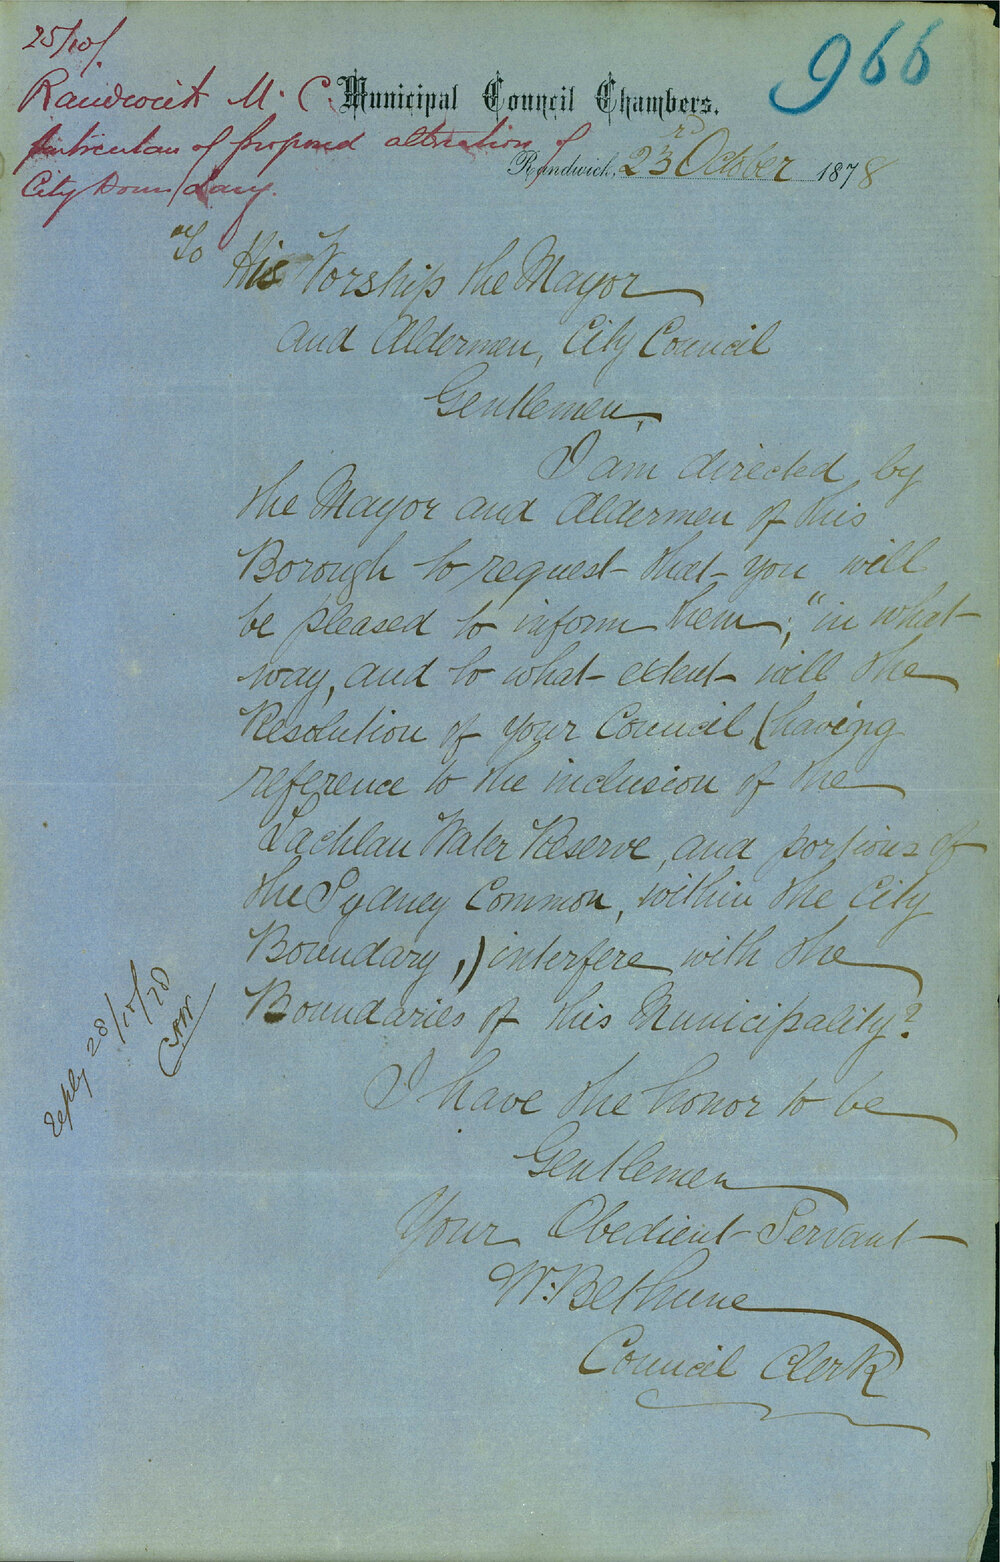 25/10/
966
Randwick M. C.
Municipal Council Chambers.
particulars of proposed alteration of
City Boundary.
Randwick, 23rd October 1878
To His Worship the Mayor
and Aldermen, City Council
Gentlemen,
I am directed by
the Mayor and Aldermen of this
Borough to request that you will
be pleased to inform them, "in what
way, and to what extent will the
Resolution of your Council (having
reference to the inclusion of the
Lachlan Water Reserve, and portions of
the Sydney Common, within the City
Boundary,) interfere with the
Boundaries of this Municipality?
reply 28/10/78
I have the honor to be
Gentlemen
Your Obedient Servant
W. Bethune
Council Clerk